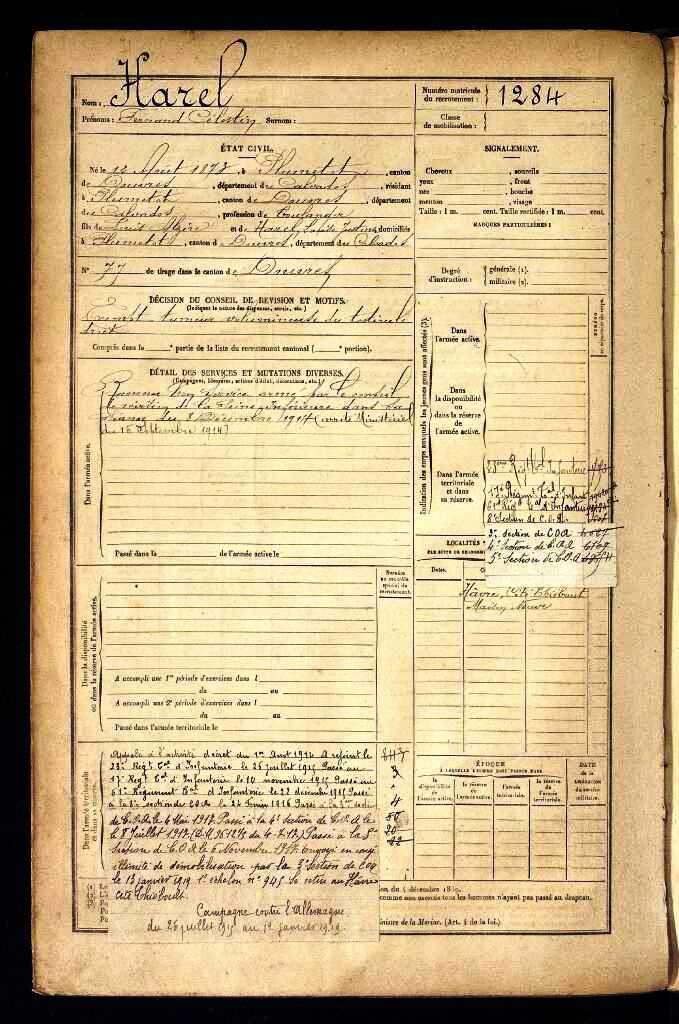 Nom : Harel
Prénoms : Fernand Célestin Surnom :
Numéro matricule du recrutement : 1284
Classe de mobilisation :
ÉTAT CIVIL.
Né le 12 Août 1873, à Plumetot, canton
de Douvres, département du Calvados, résidant
à Plumetot, canton de Douvres, département
du Calvados, profession de boulanger
fils de Louis et de Harel domiciliés
à Plumetot, canton de Douvres, département du Calvados
N° 77 de tirage dans le canton de Douvres
DÉCISION DU CONSEIL DE REVISION ET MOTIFS.
(Indiquer la nature des dispenses, sursis, etc.)
Exempt tumeur volumineuse du testicule
droit
Compris dans la partie de la liste du recrutement cantonal ( portion).
DÉTAIL DES SERVICES ET MUTATIONS DIVERSES.
(Campagnes, blessures, actions d'éclat, décorations, etc.)
Reconnu bon service armé par le conseil
de révision de la Seine-Inférieure dans sa
séance du 8 Décembre 1914 (arrêté Ministériel
du 15 Septembre 1914)
Dans l'armée active.
Passé dans la de l'armée active le
Dans la disponibilité ou dans la réserve de l'armée active.
A accompli une 1re période d'exercices dans l
du au
A accompli une 2e période d'exercices dans l
du au
Passé dans l'armée territoriale le
Dans l'armée territoriale et dans sa réserve.
Appelé à l'activité décret du 1er Août 1914 A rejoint le
23e Régt Tal d'Infanterie le 26 juillet 1915 Passé au
17e Régt Tal d'Infanterie le 10 novembre 1915 Passé au
61e Régiment Tal d'Infanterie le 22 décembre 1915 Passé
à la 8e section de COA le 24 Février 1916 Passé à la 3e section
de C.O.A le 6 Mai 1917. Passé à la 4e Section de C.O.A le
le 8 Juillet 1917 Passé à la 5e
Section de C.O.A le 6 Novembre 1917. Envoyé en congé
illimité de démobilisation par la 3e Section de COA
le 13 janvier 1919 1er échelon n° 945 Se retire au Hâvre
cité Thiébault.
Campagne contre l'Allemagne
du 26 juillet 1915 au 12 janvier 1919
SIGNALEMENT.
Cheveux , sourcils
yeux , front
nez , bouche
menton , visage
Taille : 1 m. cent. Taille rectifiée : 1 m. cent.
MARQUES PARTICULIÈRES :
Degré d'instruction : générale (1). militaire (2).
Indication des corps auxquels les jeunes gens sont affectés (3).
Dans l'armée active.
Dans la disponibilité ou dans la réserve de l'armée active.
Dans l'armée territoriale et dans sa réserve.
Régt Tal d'Infanterie
17e Régimt Tal d'Infant
61e Régt Tal d'Infanterie
8e Section de C.O.A.
3e section de COA
4e Section de C.O.A
5e Section de C.O.A
LOCALITÉS
Dates.
Hâvre, Cité Thiébault
ÉPOQUE
la disponibilité de l'armée active.
la réserve de l'armée active.
l'armée territoriale.
la réserve de l'armée territoriale.
DATE de la LIBÉRATION du service militaire.
comme non exercés tous les hommes n'ayant pas passé au drapeau.
Ministre de la Marine. (Art. 4 de la loi.)